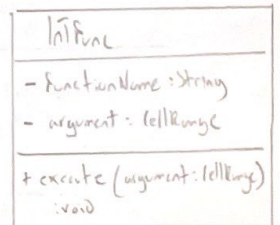 IntFunc
- functionName : String
- argument : CellRange
+ execute (argument : CellRange)
: void